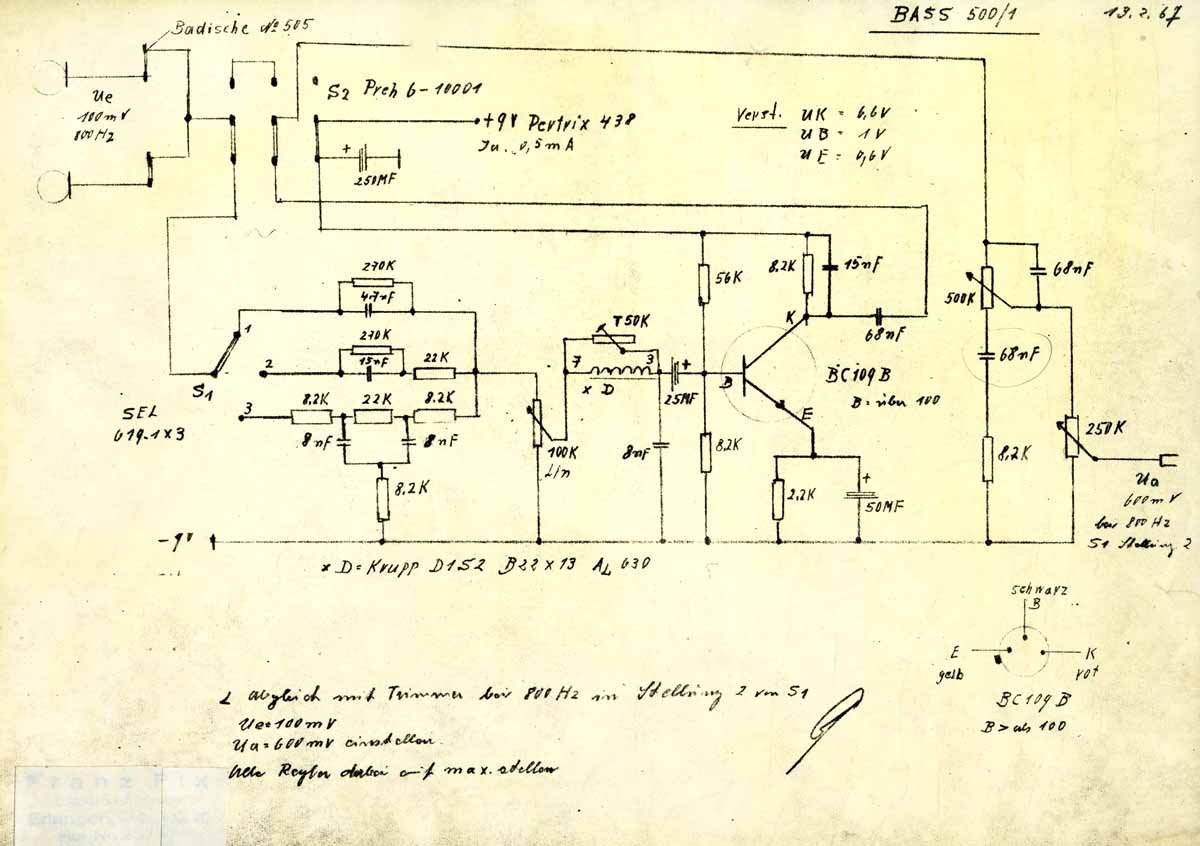 BASS 500/1
13.2.67
Badische No 505
Ue
100mV
800Hz
S2 Preh 6-10001
+9V Pertrix 438
Ja. 0,5mA
+
250MF
Verst. UK = 6,6V
UB = 1V
UE = 0,6V
270K
4,7nF
270K
15nF
22K
1
2
3
S1
SEL
619-1x3
8.2K
22K
8.2K
8nF
8nF
8.2K
100K
Lin
T50K
7
3
x D
+
25MF
8nF
56K
8.2K
8.2K
15nF
K
68nF
B
BC109B
B = über 100
E
2.2K
+
50MF
500K
68nF
68nF
8.2K
250K
Ua
600mV
bei 800Hz
S1 Stellung 2
-9V
x D = Krupp D1S2 B22x13 AL 630
schwarz
B
E
gelb
K
rot
BC109B
B > als 100
Abgleich mit Trimmer bei 800Hz in Stellung 2 von S1
Ue=100mV
Ua=600mV einstellen.
Alle Regler dabei auf max. stellen
Franz Pix
Erlangen